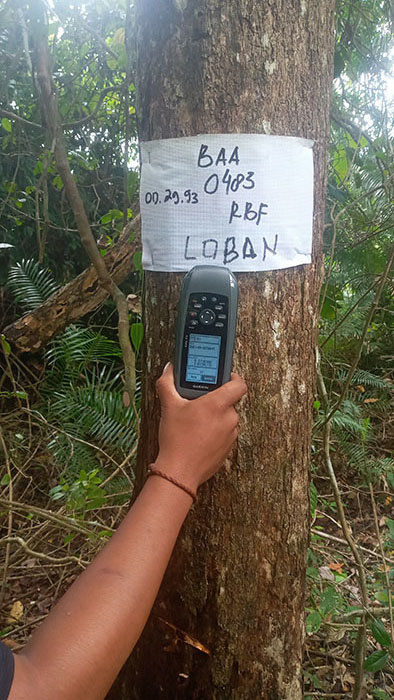 BAA
0483
00.29.93
RBF
LOBAN
GARMIN